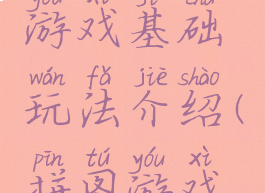 yóu xì jī chǔ
游戏基础
wán fǎ jiè shào
玩法介绍(
pīn tú yóu xì
拼图游戏